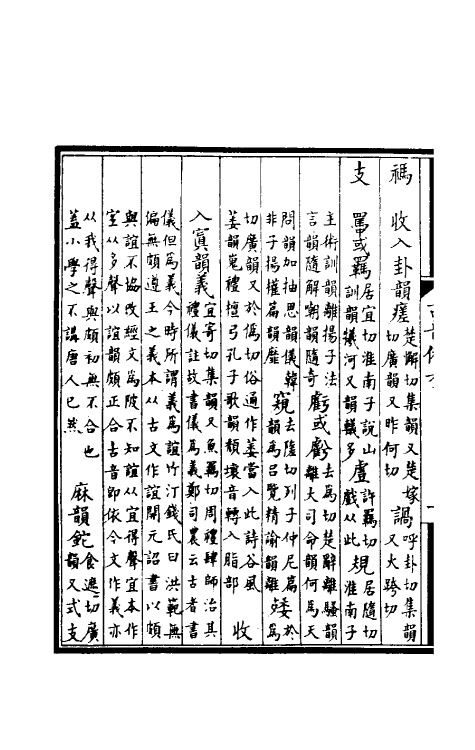 禡　收入卦韻瘥楚懈切集韻又楚嫁切廣韻又昨何切諣呼卦切集韻又火跨切
支　罵或羈居宜切淮南子說山訓韻犧河又韻轙多虘許羈切戲从此規居隨切淮南子
主術訓韻離揚子法言韻隨解嘲韻隨奇虧或虧去爲切楚辭離騷韻離大司命韻何爲天
問韻加抽思韻儀韓非子揚搉篇韻靡窺去隨切列子仲尼篇韻爲呂覽精諭韻離矮於爲
切廣韻又於僞切俗通作萎當入此詩谷風萎韻嵬禮檀弓孔子歌韻頹壞音轉入脂部　收
入寘韻義宜寄切集韻又魚羈切周禮肆師治其禮儀注故書儀爲義鄭司農云古者書
儀但爲義今時所謂義爲誼竹汀錢氏曰洪範無偏無頗遵王之義本从古文作誼開元詔書以頗
與誼不協改經文爲陂不知誼从宜得聲宜本作室从多聲以誼韻頗正合古音即依今文作義亦
从我得聲與頗初無不合也蓋小學之不講唐人已然　麻韻鉈食遮切廣韻又式支